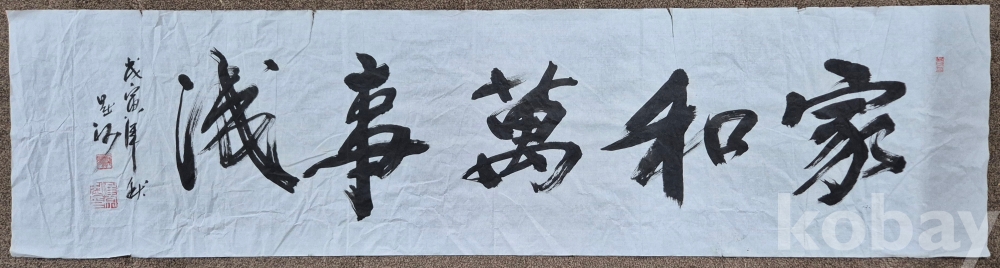 家和萬事成
戊寅年秋
kobay